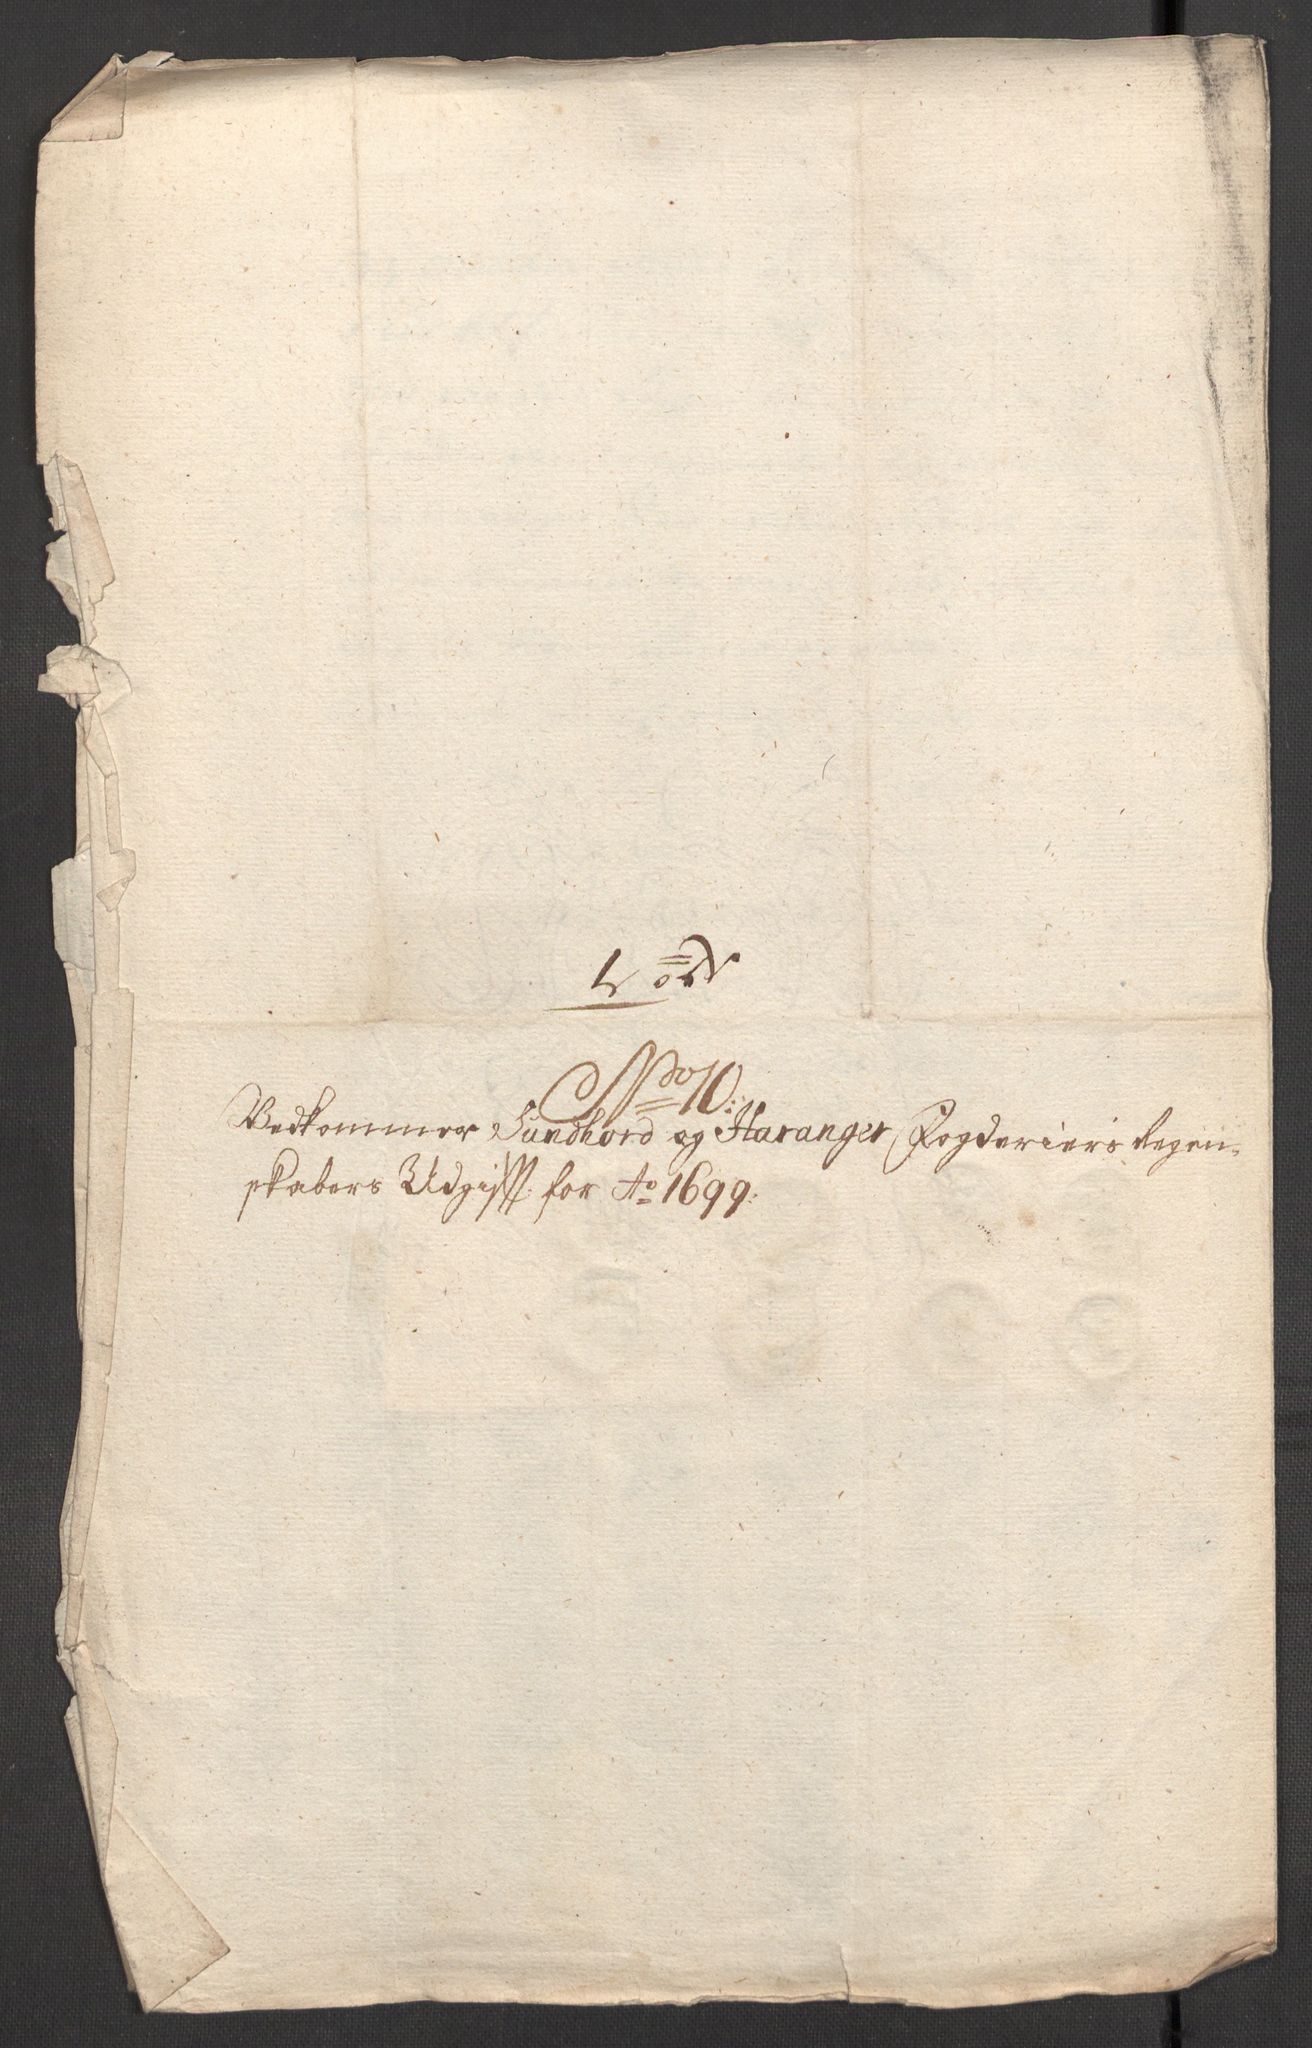 No 10:
Vedkommer Sundhord og Haranger Fogderiers Regen-
skabers Udgifft for Ao 1699: